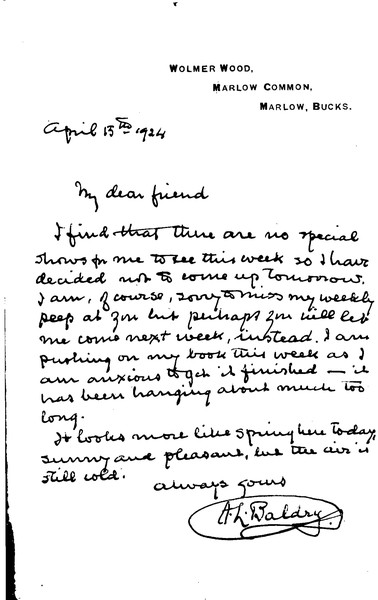 WOLMER WOOD,
MARLOW COMMON,
MARLOW, BUCKS.
April 13th 1924
My dear friend
I find that there are no special
shows for me to see this week so I have
decided not to come up tomorrow.
I am, of course, sorry to miss my weekly
peep at you but perhaps you will let
me come next week, instead. I am
pushing on my book this week as I
am anxious to get it finished — it
has been hanging about much too
long.
It looks more like spring here today,
sunny and pleasant, but the air is
still cold.
Always yours
A. L. Baldry.